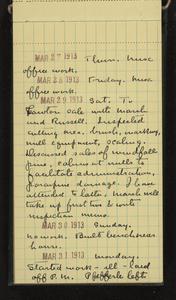 MAR 27 1913 Thurs. Misc
office work.
MAR 28 1913 Friday. Misc
office work.
MAR 29 1913 Sat. To
sale with Marsh
and Russell. Inspected
cutting area, brush, marking,
mill equipment, scaling.
Discussed sales of
, at mills to
facilitate administration,
damage. I have
attended to latter. Marsh will
take up first two & write
inspection memo.
MAR 30 1913 Sunday.
no work. Built
house.
MAR 31 1913 Monday.
Started work - ill - laid
off P.M. left